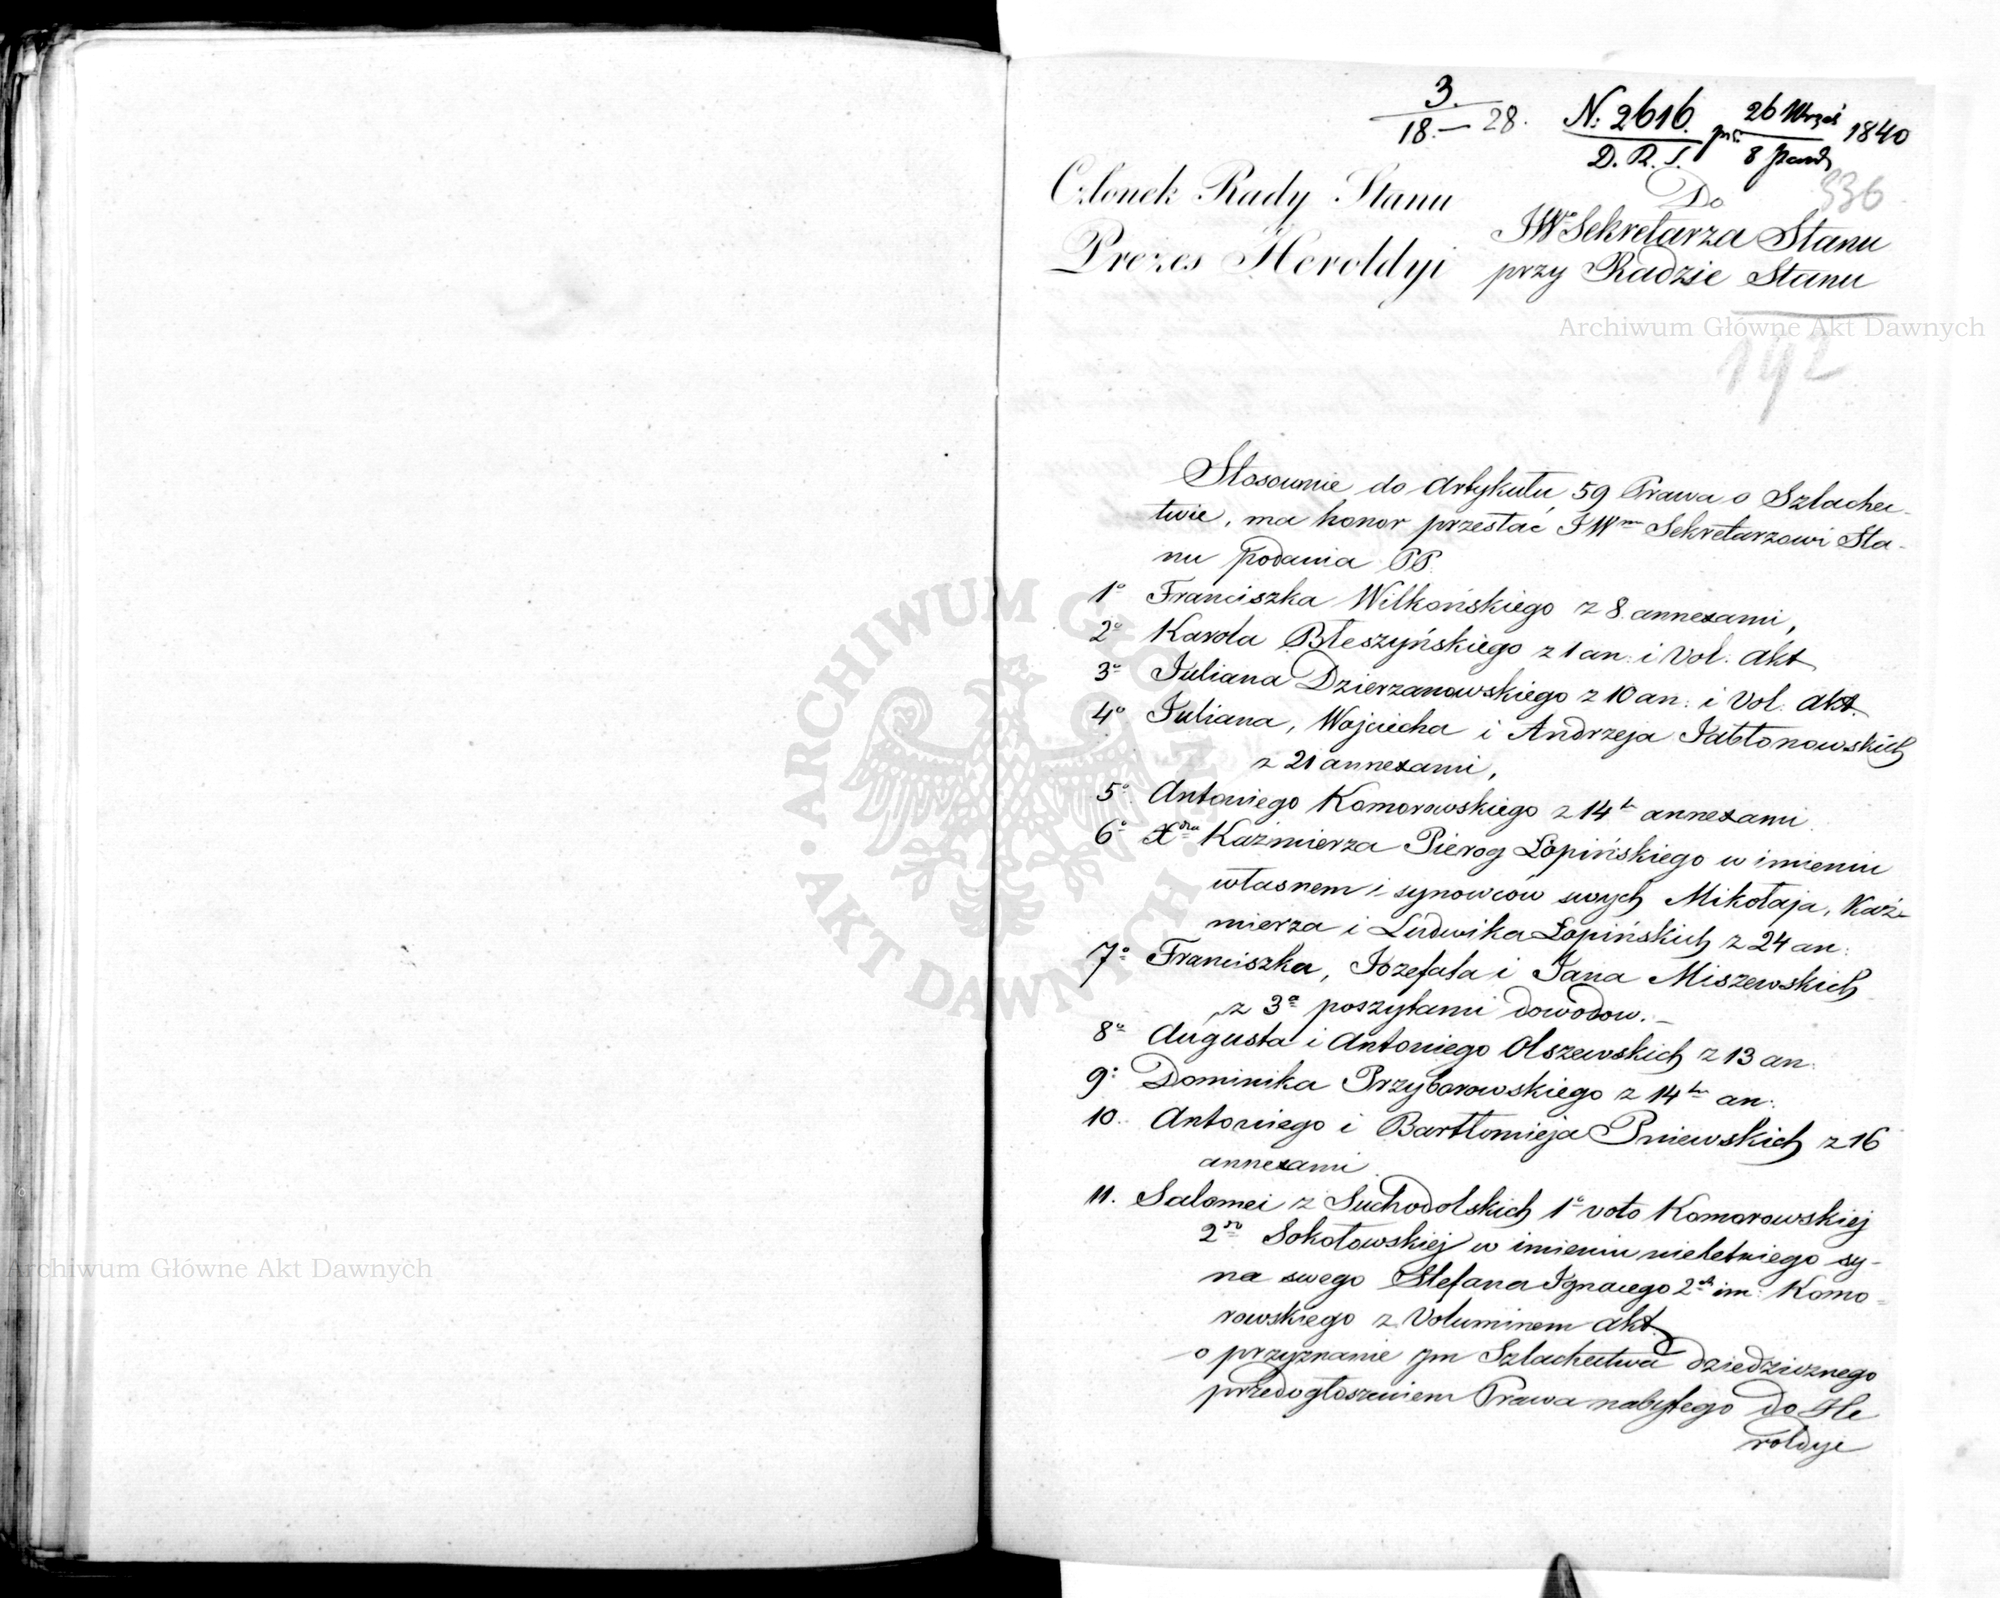 3.
18. — 28.
N: 2616. pr: 26 Wrześ 1840
D. R. S. 8 Pazd
336
Członek Rady Stanu
Prezes Heroldyi
Do
JWo Sekretarza Stanu
przy Radzie Stanu
Archiwum Główne Akt Dawnych
192
Stosownie do Artykułu 59 Prawa o Szlachec-
twie, ma honor przesłać JWmu Sekretarzowi Sta-
nu podania PP.
1o Franciszka Wilkońskiego z 8 annexami,
2o Karola Błeszyńskiego z 1 an: i Vol: Akt
3o Juliana Dzierzanowskiego z 10 an: i Vol: Akt.
4o Juliana, Wojciecha i Andrzeja Jabłonowskich
z 21 annexami,
5o Antoniego Komorowskiego z 14tu annexami.
6o Xdza Kaźmierza Pierog Łopińskiego w imieniu
własnem i synowców swych Mikołaja, Kaź-
mierza i Ludwika Łopińskich z 24 an:
7o Franciszka, Jozefata i Jana Miszewskich
z 3a poszytami dowodow.—
8o Augusta i Antoniego Olszewskich z 13 an:
9o Dominika Przyborowskiego z 14tu an:
10. Antoniego i Bartłomieja Pniewskich z 16
annexami.
11. Salomei z Suchodolskich 1o voto Komorowskiej
2do Sokołowskiej w imieniu nieletniego sy-
na swego Stefana Ignacego 2ch im: Komo-
rowskiego z Voluminem Akt.
o przyznanie im Szlachectwa dziedzicznego
przed ogłoszeniem Prawa nabytego do He
roldyi
ARCHIWUM GŁÓWNE
AKT DAWNYCH
Archiwum Główne Akt Dawnych